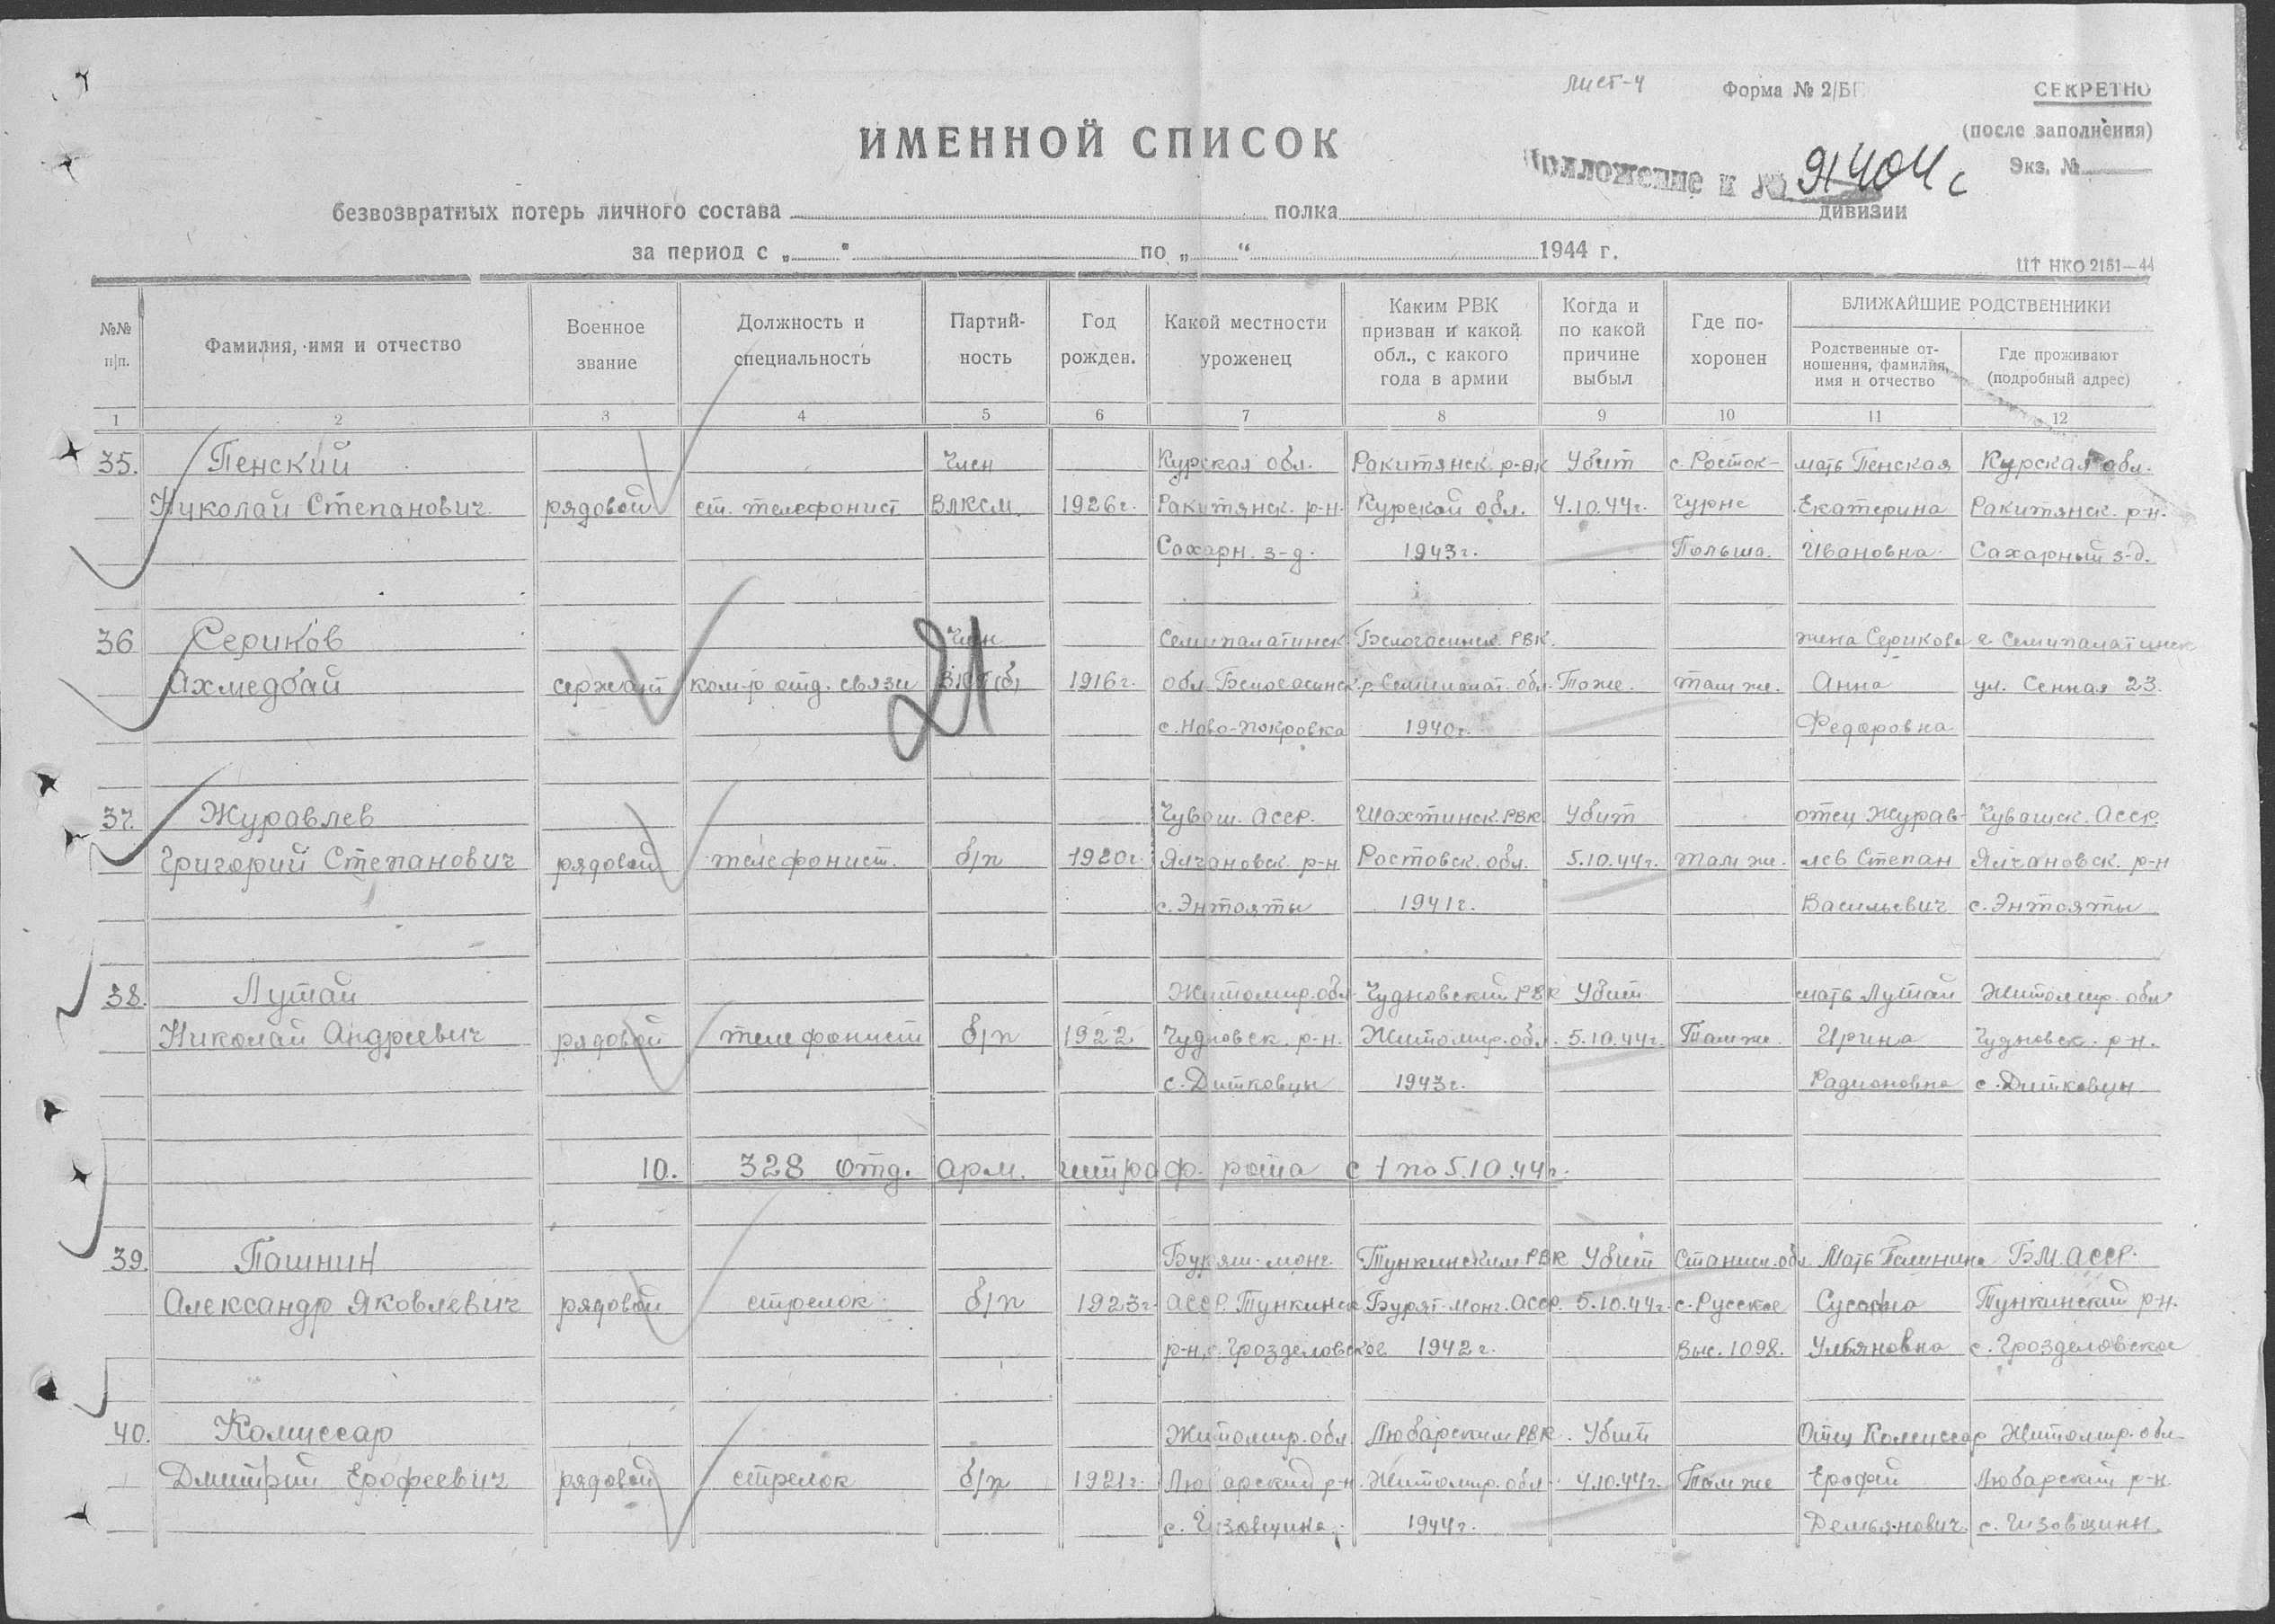 лист-4 Форма № 2/БП СЕКРЕТНО
(после заполнения)
ИМЕННОЙ СПИСОК
Приложение к № 91404 с Экз. №
безвозвратных потерь личного состава полка дивизии
за период с „ “ по „ “ 1944 г.
ЦТ НКО 2151—44
№№ п/п. Фамилия, имя и отчество Военное звание Должность и специальность Партий- ность Год рожден. Какой местности уроженец Каким РВК призван и какой обл., с какого года в армии Когда и по какой причине выбыл Где по- хоронен БЛИЖАЙШИЕ РОДСТВЕННИКИ
Родственные от- ношения, фамилия, имя и отчество Где проживают (подробный адрес)
1 2 3 4 5 6 7 8 9 10 11 12
35. Пенский Член Курская обл. Ракитянск. Убит с. Росток- мать Пенская Курская обл.
Николай Степанович рядовой ст. телефонист ВЛКСМ. 1926г. Ракитянск. р-н. Курской обл. 4.10.44г. Чурне Екатерина Ракитянск. р-н.
Сахарн. з-д. 1943г. Польша. Ивановна Сахарный з-д.
36 Сериков Член Семипалатинск РВК. жена Серикова г. Семипалатинск
Ахмедбай сержант ком-р отд. связи ВКП(б) 1916г. обл. Семипалат. обл. Тоже. там же. Анна ул. Сенная 23.
21
с. Ново-Покровка 1940г. Федоровна
37. Журавлев Чуваш. АССР. Шахтинск. РВК Убит отец Журав- Чувашск. АССР
Григорий Степанович рядовой телефонист. б/п 1920г. Ялчановск. р-н Ростовск. обл. 5.10.44г. там же. лев Степан Ялчановск. р-н
с. Энтояты 1941г. Васильевич с. Энтояты
38. Лутай Житомир. обл. Чудновский РВК Убит мать Лутай Житомир. обл
Николай Андреевич рядовой телефонист б/п 1922 Чудновск. р-н. Житомир. обл. 5.10.44г. Там же. Ирина Чудновск. р-н.
с. Дитковцы 1943г. Радионовна с. Дитковцы
10. 328 отд. арм. штраф. рота с 1 по 5.10.44г.
39. Пашнин Бурят-монг. Тункинским РВК Убит Станисл. обл. Мать Пашнина Б.М. АССР.
Александр Яковлевич рядовой стрелок б/п 1923г. АССР. Тункинск Бурят-Монг. АССР. 5.10.44г. с. Русское Тункинский р-н.
р-н, с. Грозделовское 1942г. Выс. 1098. Ульяновна с. Грозделовское
40. Комиссар Житомир. обл Любарским РВК. Убит Отец Комиссар Житомир. обл.
Дмитрий Ерофеевич рядовой стрелок б/п 1921г. Любарский р-н. Житомир. обл. 4.10.44г. Там же Ерофей Любарский р-н.
с. 1944г. Демьянович с.